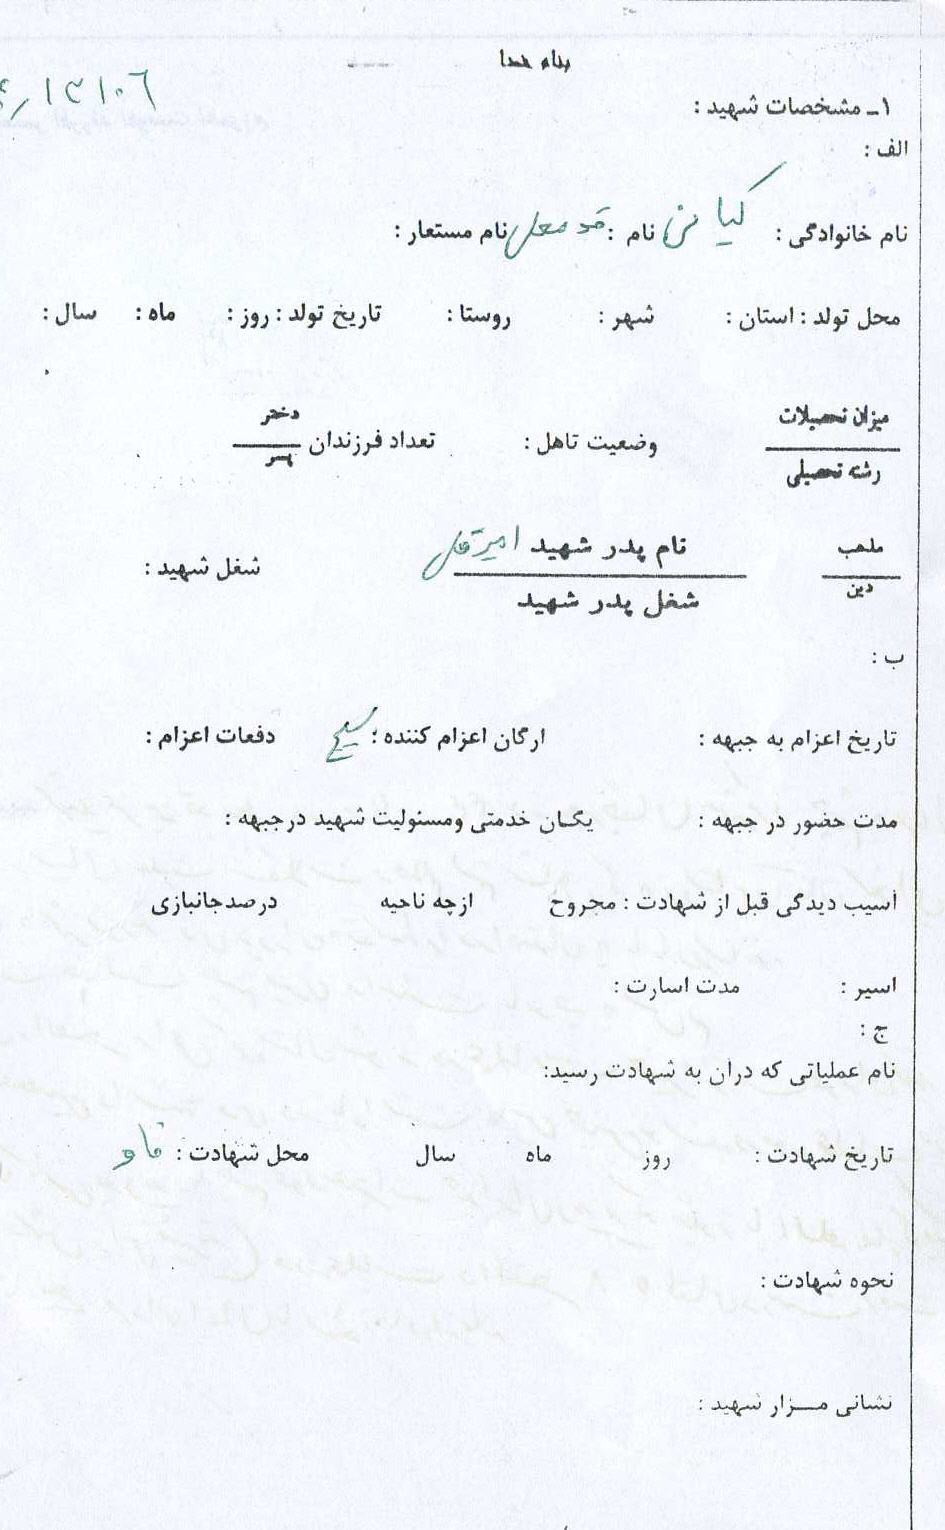 بنام خدا
۱ـ مشخصات شهید :
الف :
نام خانوادگی : کیانی نام : نام مستعار :
محل تولد : استان : شهر : روستا : تاریخ تولد : روز : ماه : سال :
میزان تحصیلات
رشته تحصیلی
وضعیت تاهل :
تعداد فرزندان
دختر
پسر
مذهب
دین
نام پدر شهید امیرقلی
شغل پدر شهید
شغل شهید :
ب :
تاریخ اعزام به جبهه : ارگان اعزام کننده : بسیج دفعات اعزام :
مدت حضور در جبهه : یگان خدمتی ومسئولیت شهید درجبهه :
آسیب دیدگی قبل از شهادت : مجروح ازچه ناحیه درصدجانبازی
اسیر : مدت اسارت :
ج :
نام عملیاتی که دران به شهادت رسید:
تاریخ شهادت : روز ماه سال محل شهادت : فاو
نحوه شهادت :
نشانی مـزار شهید :